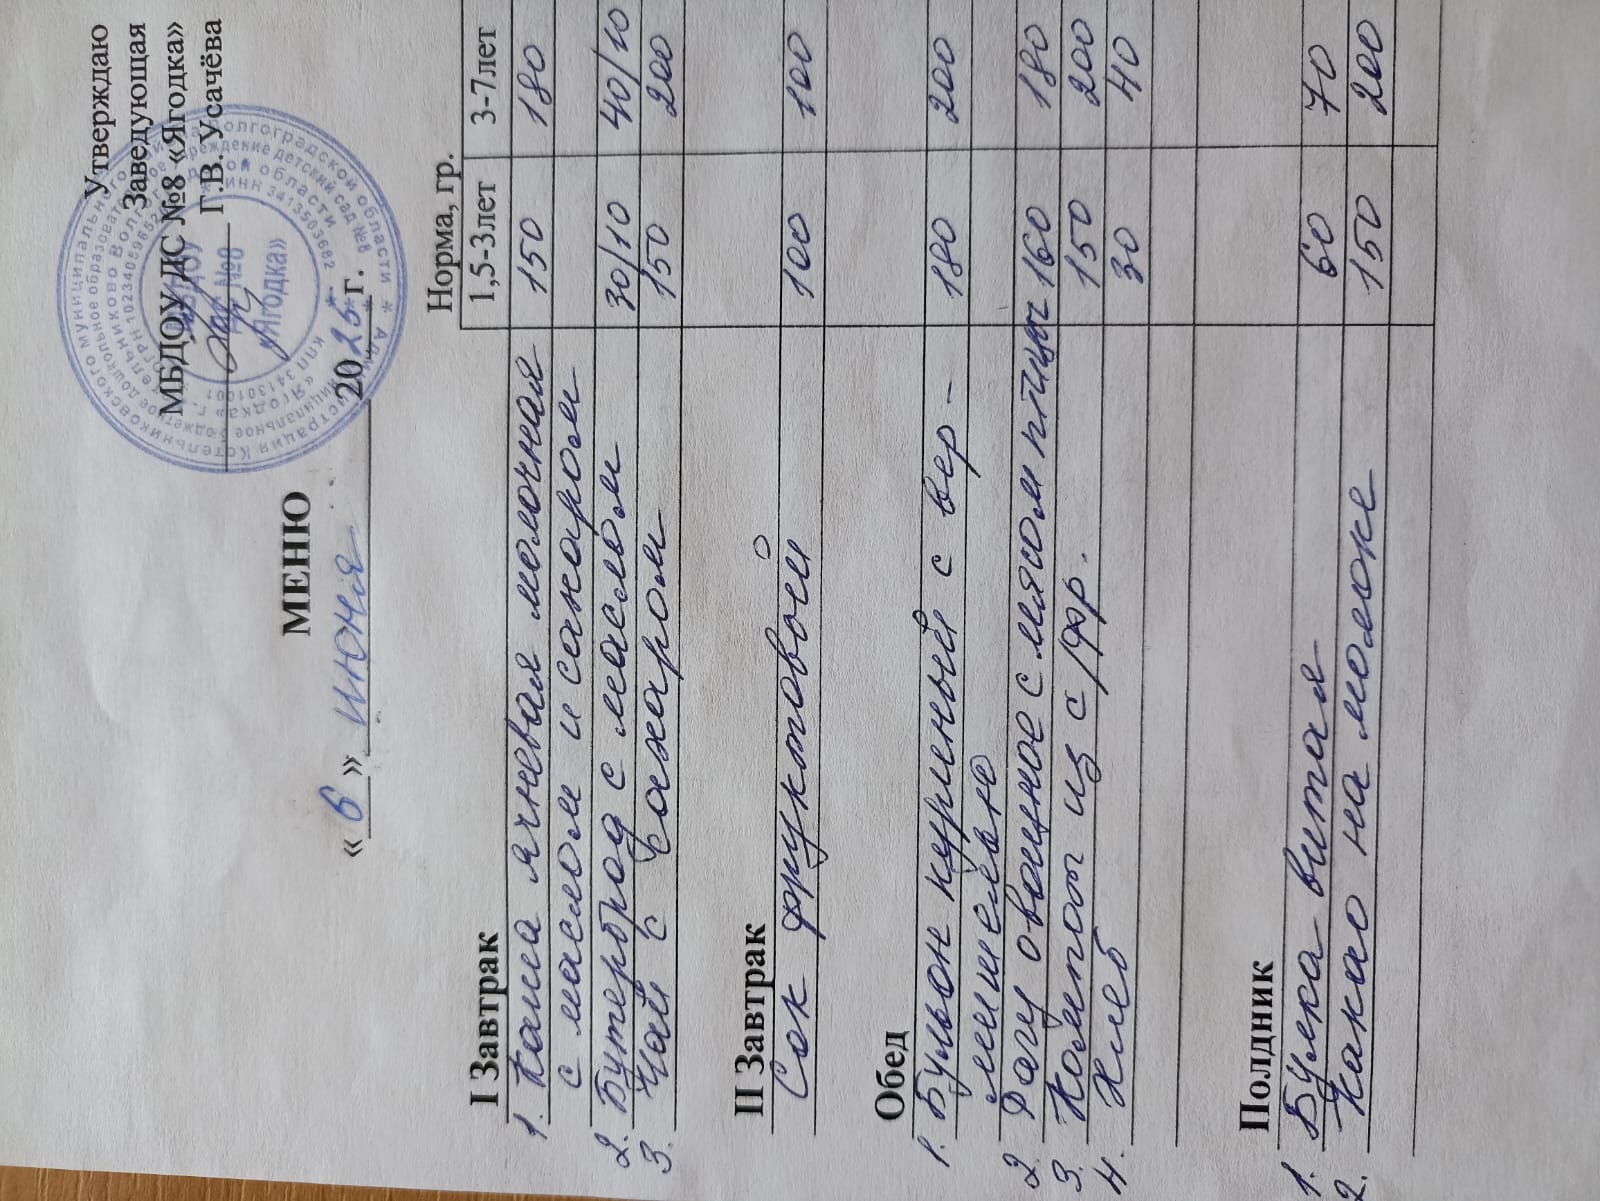 Утверждаю
Заведующая
МБДОУ ДС №8 «Ягодка»
Г.В. Усачёва
МЕНЮ
«6» июня 2025 г.
Норма, гр.
I Завтрак 1,5-3лет 3-7лет
1. Каша ячневая молочная 150 180
с маслом и сахаром
2. Бутерброд с маслом 30/10 40/10
3. Чай с сахаром 150 200
II Завтрак
Сок фруктовый 100 100
Обед
1. Бульон куриный с вер- 180 200
мишелью
2. Рагу овощное с мясом птицы 160 180
3. Компот из с/фр. 150 200
4. Хлеб 30 40
Полдник
1. Булка витая 60 70
2. Какао на молоке 150 200